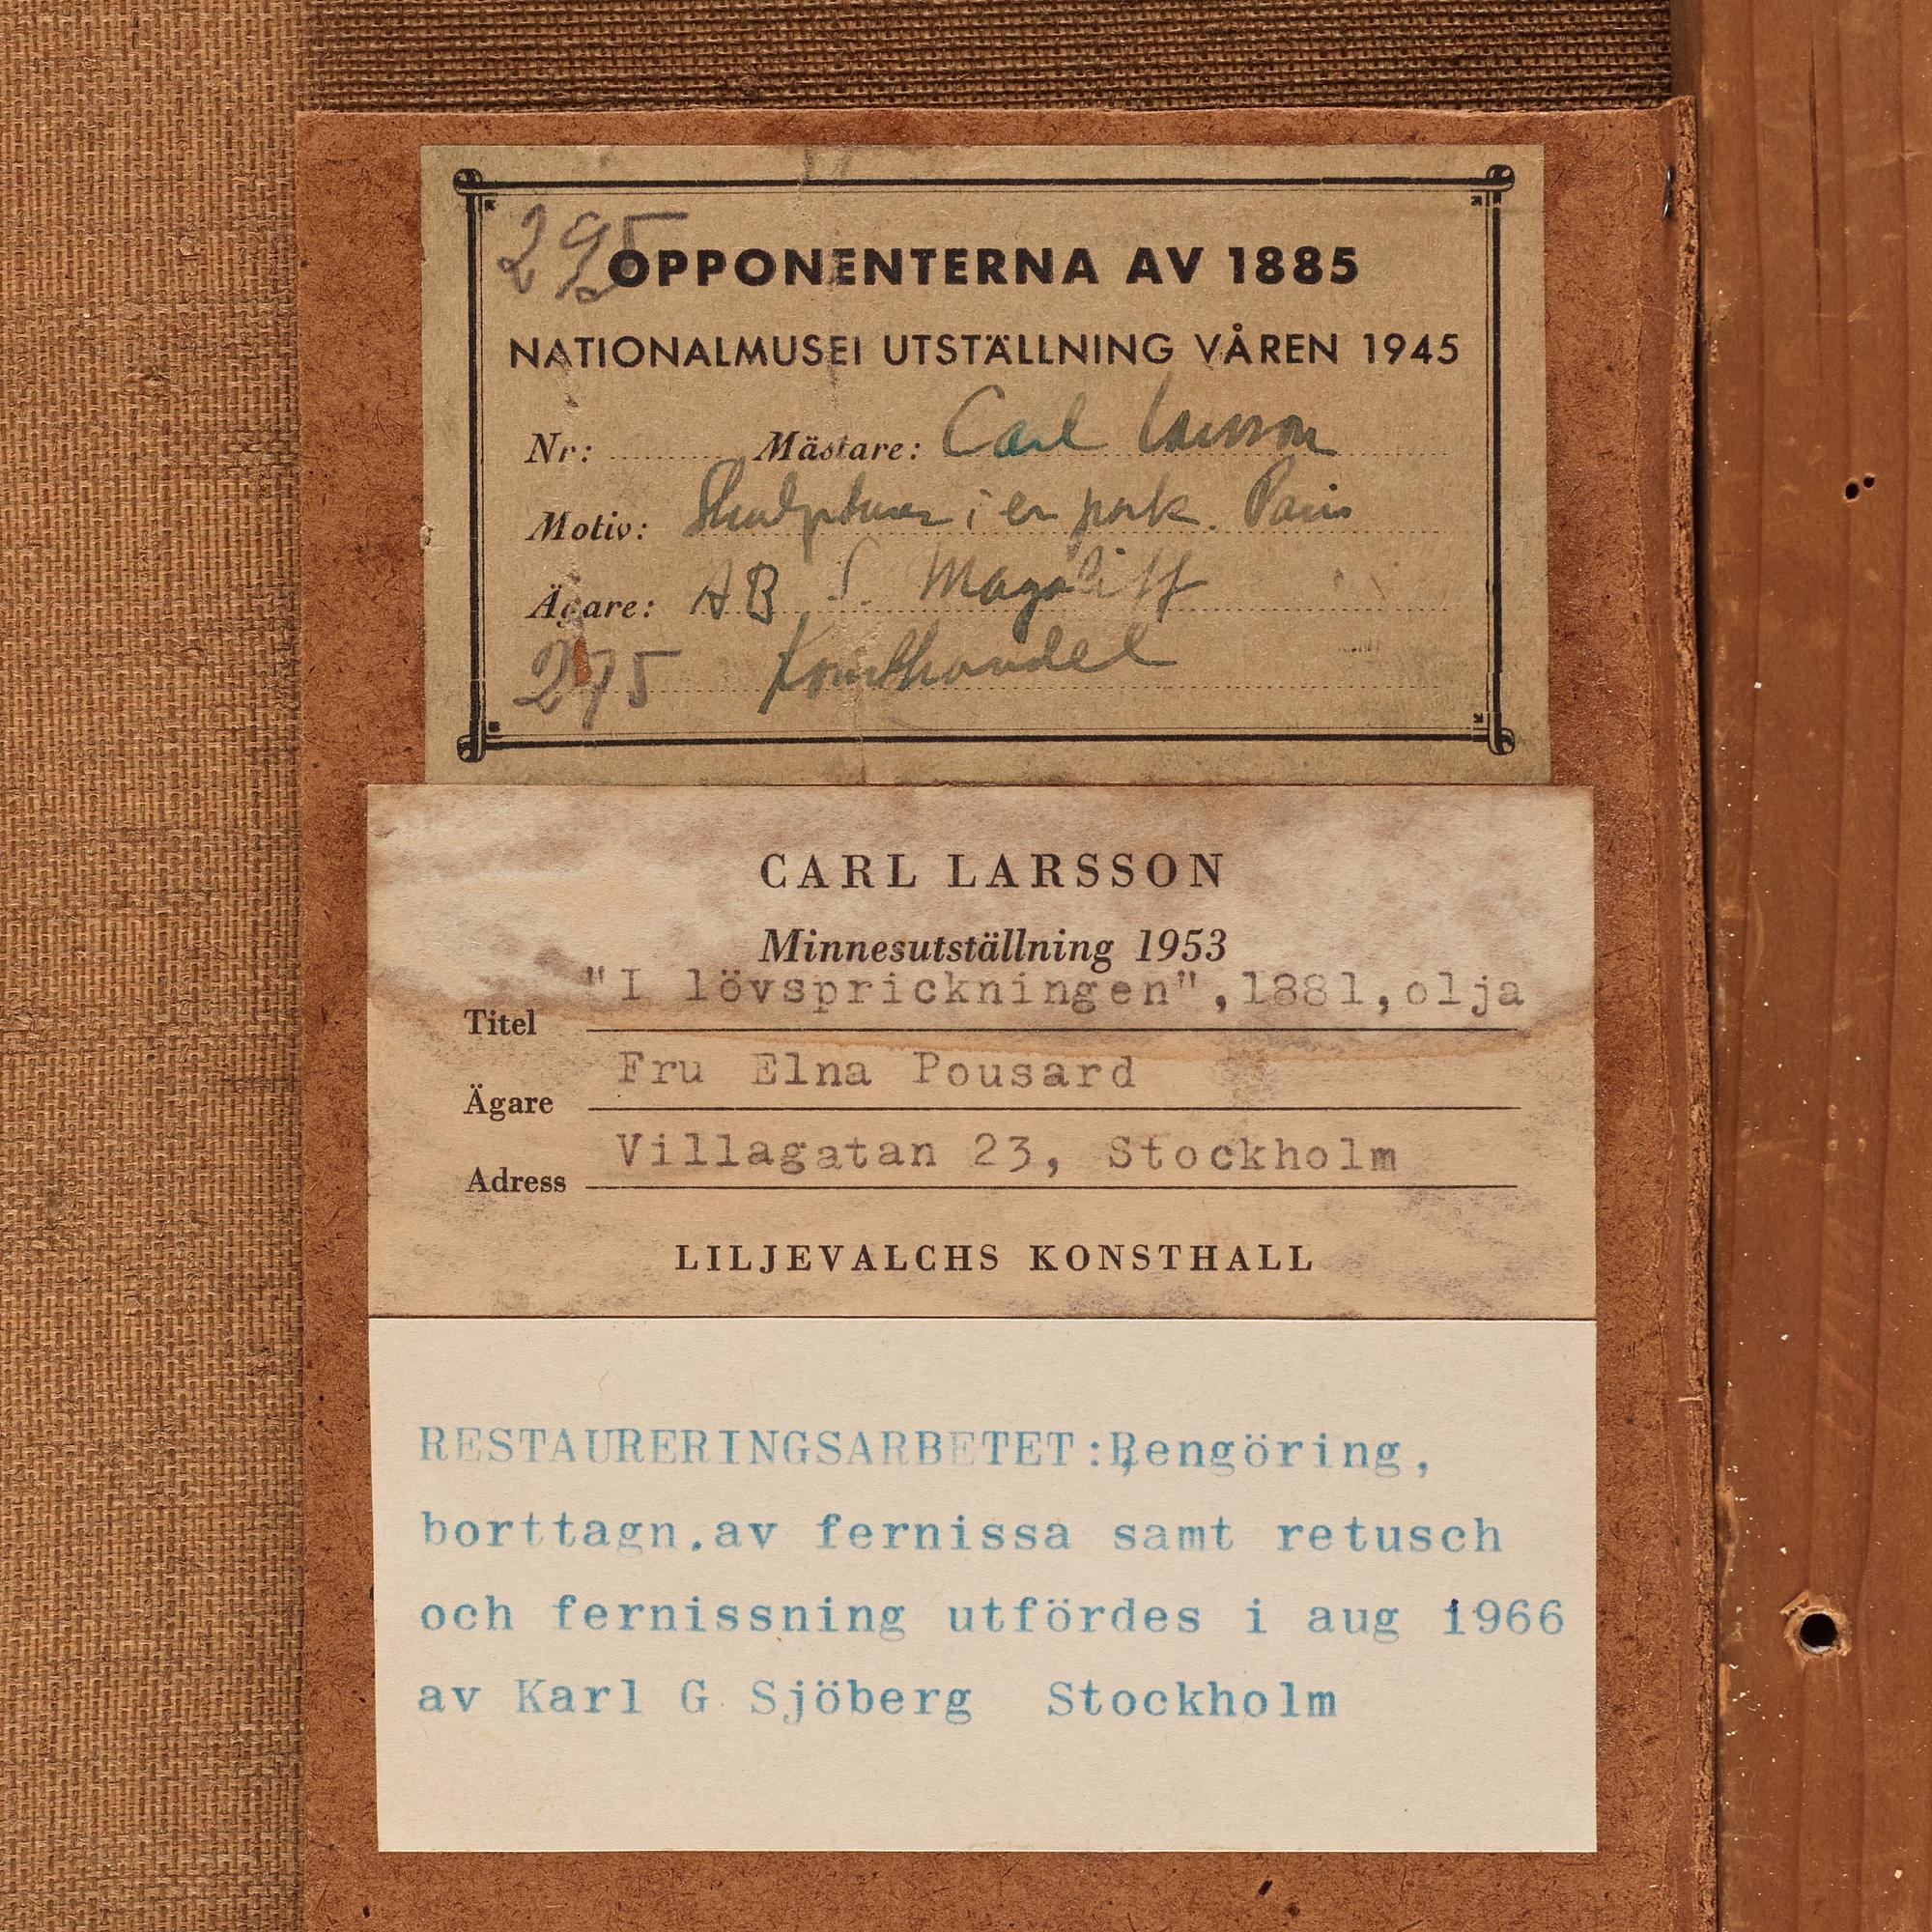 295
OPPONENTERNA AV 1885
NATIONALMUSEI UTSTÄLLNING VÅREN 1945
Nr: Mästare: Carl Larsson
Motiv: Skulpturer i en park. Paris
Ägare: AB S. Magaliff
295 Konsthandel
CARL LARSSON
Minnesutställning 1953
Titel "I lövsprickningen",1881,olja
Ägare Fru Elna Pousard
Adress Villagatan 23, Stockholm
LILJEVALCHS KONSTHALL
RESTAURERINGSARBETET:Rengöring,
borttagn.av fernissa samt retusch
och fernissning utfördes i aug 1966
av Karl G Sjöberg Stockholm